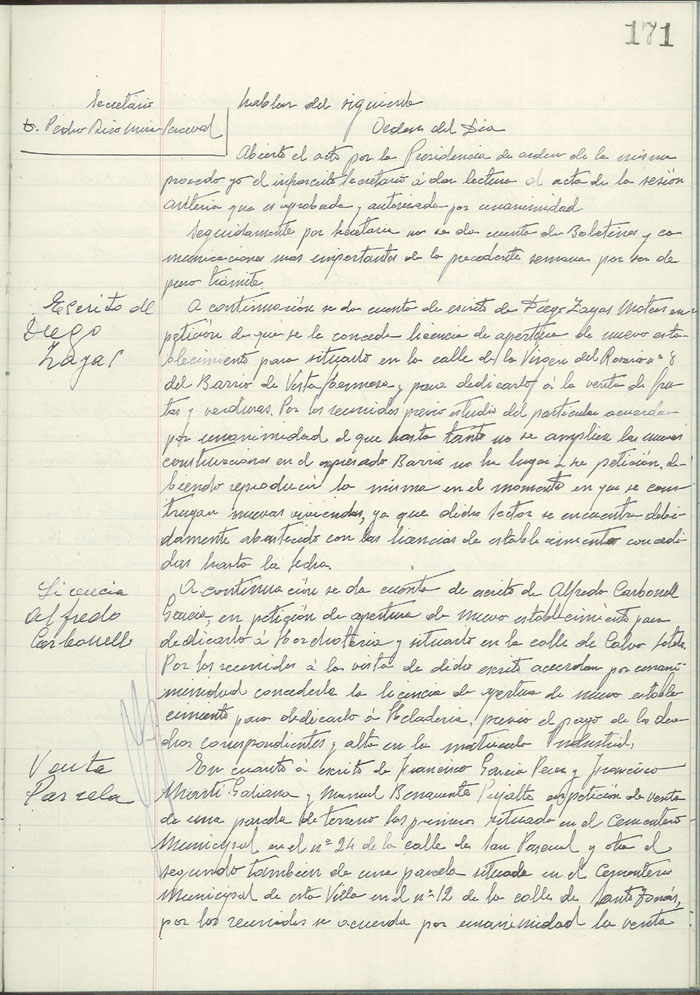 171
Secretario
D. Pedro Rico Mira Perceval
hablan del siguiente
Orden del Dia
Abierto el acto por la Presidencia de orden de la misma
procedo yo el infrascrito Secretario á dar lectura al acta de la sesión
anterior que es aprobada y autorizada por unanimidad
Seguidamente por Secretaria no se da cuenta de Boletines y co
municaciones mas importantes de la precedente semana por ser de
puro trámite.
Escrito de
Diego
Zayas
A continuación se da cuenta de escrito de Diego Zayas Mateos en
petición de que se le conceda licencia de apertura de nuevo esta-
blecimiento para situarlo en la calle de la Virgen del Rosario nº 8
del Barrio de Vista hermosa y para dedicarlo á la venta de fru
tas y verduras. Por los reunidos previo estudio del particular acuerdan
por unanimidad el que hasta tanto no se amplien las nuevas
construcciones en el expresado Barrio no ha lugar a su petición, de-
biendo reproducir la misma en el momento en que se cons-
truyan nuevas viviendas, ya que dicho Sector se encuentra debi-
damente abastecido con las licencias de establecimiento concedi-
das hasta la fecha.
Licencia
Alfredo
Carbonell
A continuación se da cuenta de escrito de Alfredo Carbonell
García, en petición de apertura de nuevo establecimiento para
dedicarlo á Horchateria y situarlo en la calle de Calvo Sotelo.
Por los reunidos á la vista de dicho escrito acuerdan por unani-
minidad concederle la licencia de apertura de nuevo estable-
cimiento para dedicarlo á Heladeria, previo el pago de los dere-
chos correspondientes y alta en la matricula Industrial.
Venta
Parcela
En cuanto á escrito de Francisco García Perez y Francisco
Marti Galiana y Manuel Benavente Pujalte en petición de venta
de una parcela de terreno los primeros situada en el Cementerio
Municipal en el nº 24 de la calle de San Pascual y otra el
segundo tambien de una parcela situada en el Cementerio
Municipal de esta Villa en el nº 12 de la calle de Santo Tomás,
por los reunidos se acuerda por unanimidad la venta